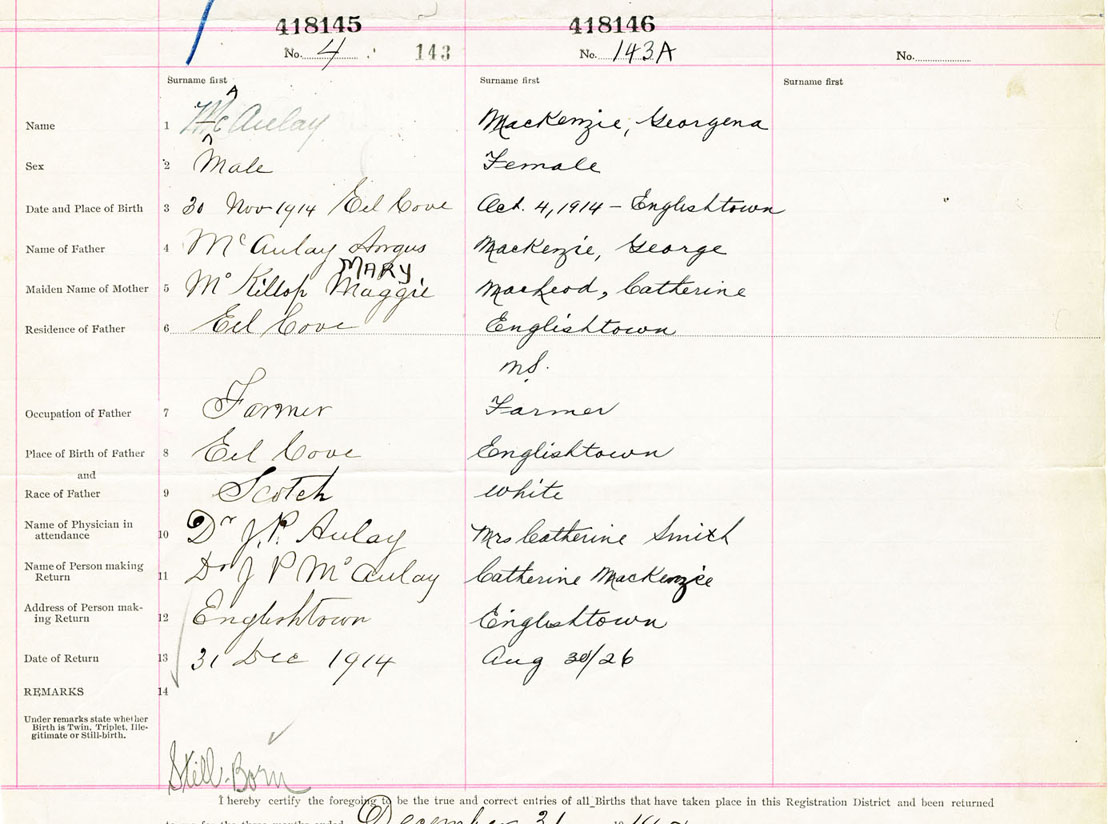 418145 418146
No. 4 143 No. 143A No.
Surname first Surname first Surname first
Name 1 McAulay Mackenzie, Georgena
Sex 2 Male Female
Date and Place of Birth 3 30 Nov 1914 Eel Cove Oct. 4, 1914 - Englishtown
Name of Father 4 McAulay Angus Mackenzie, George
MARY
Maiden Name of Mother 5 McKillop Maggie MacLeod, Catherine
Residence of Father 6 Eel Cove Englishtown
Occupation of Father 7 Farmer Farmer
Place of Birth of Father 8 Eel Cove Englishtown
and
Race of Father 9 Scotch White
Name of Physician in
attendance 10 Dr J. P. Aulay Mrs Catherine Smith
Name of Person making
Return 11 Dr J P McAulay Catherine MacKenzie
Address of Person mak-
ing Return 12 Englishtown Englishtown
Date of Return 13 31 Dec 1914 Aug 30/26
REMARKS 14
Under remarks state whether
Birth is Twin, Triplet, Ille-
gitimate or Still-birth.
Still-Born
I hereby certify the foregoing to be the true and correct entries of all Births that have taken place in this Registration District and been returned
December 31